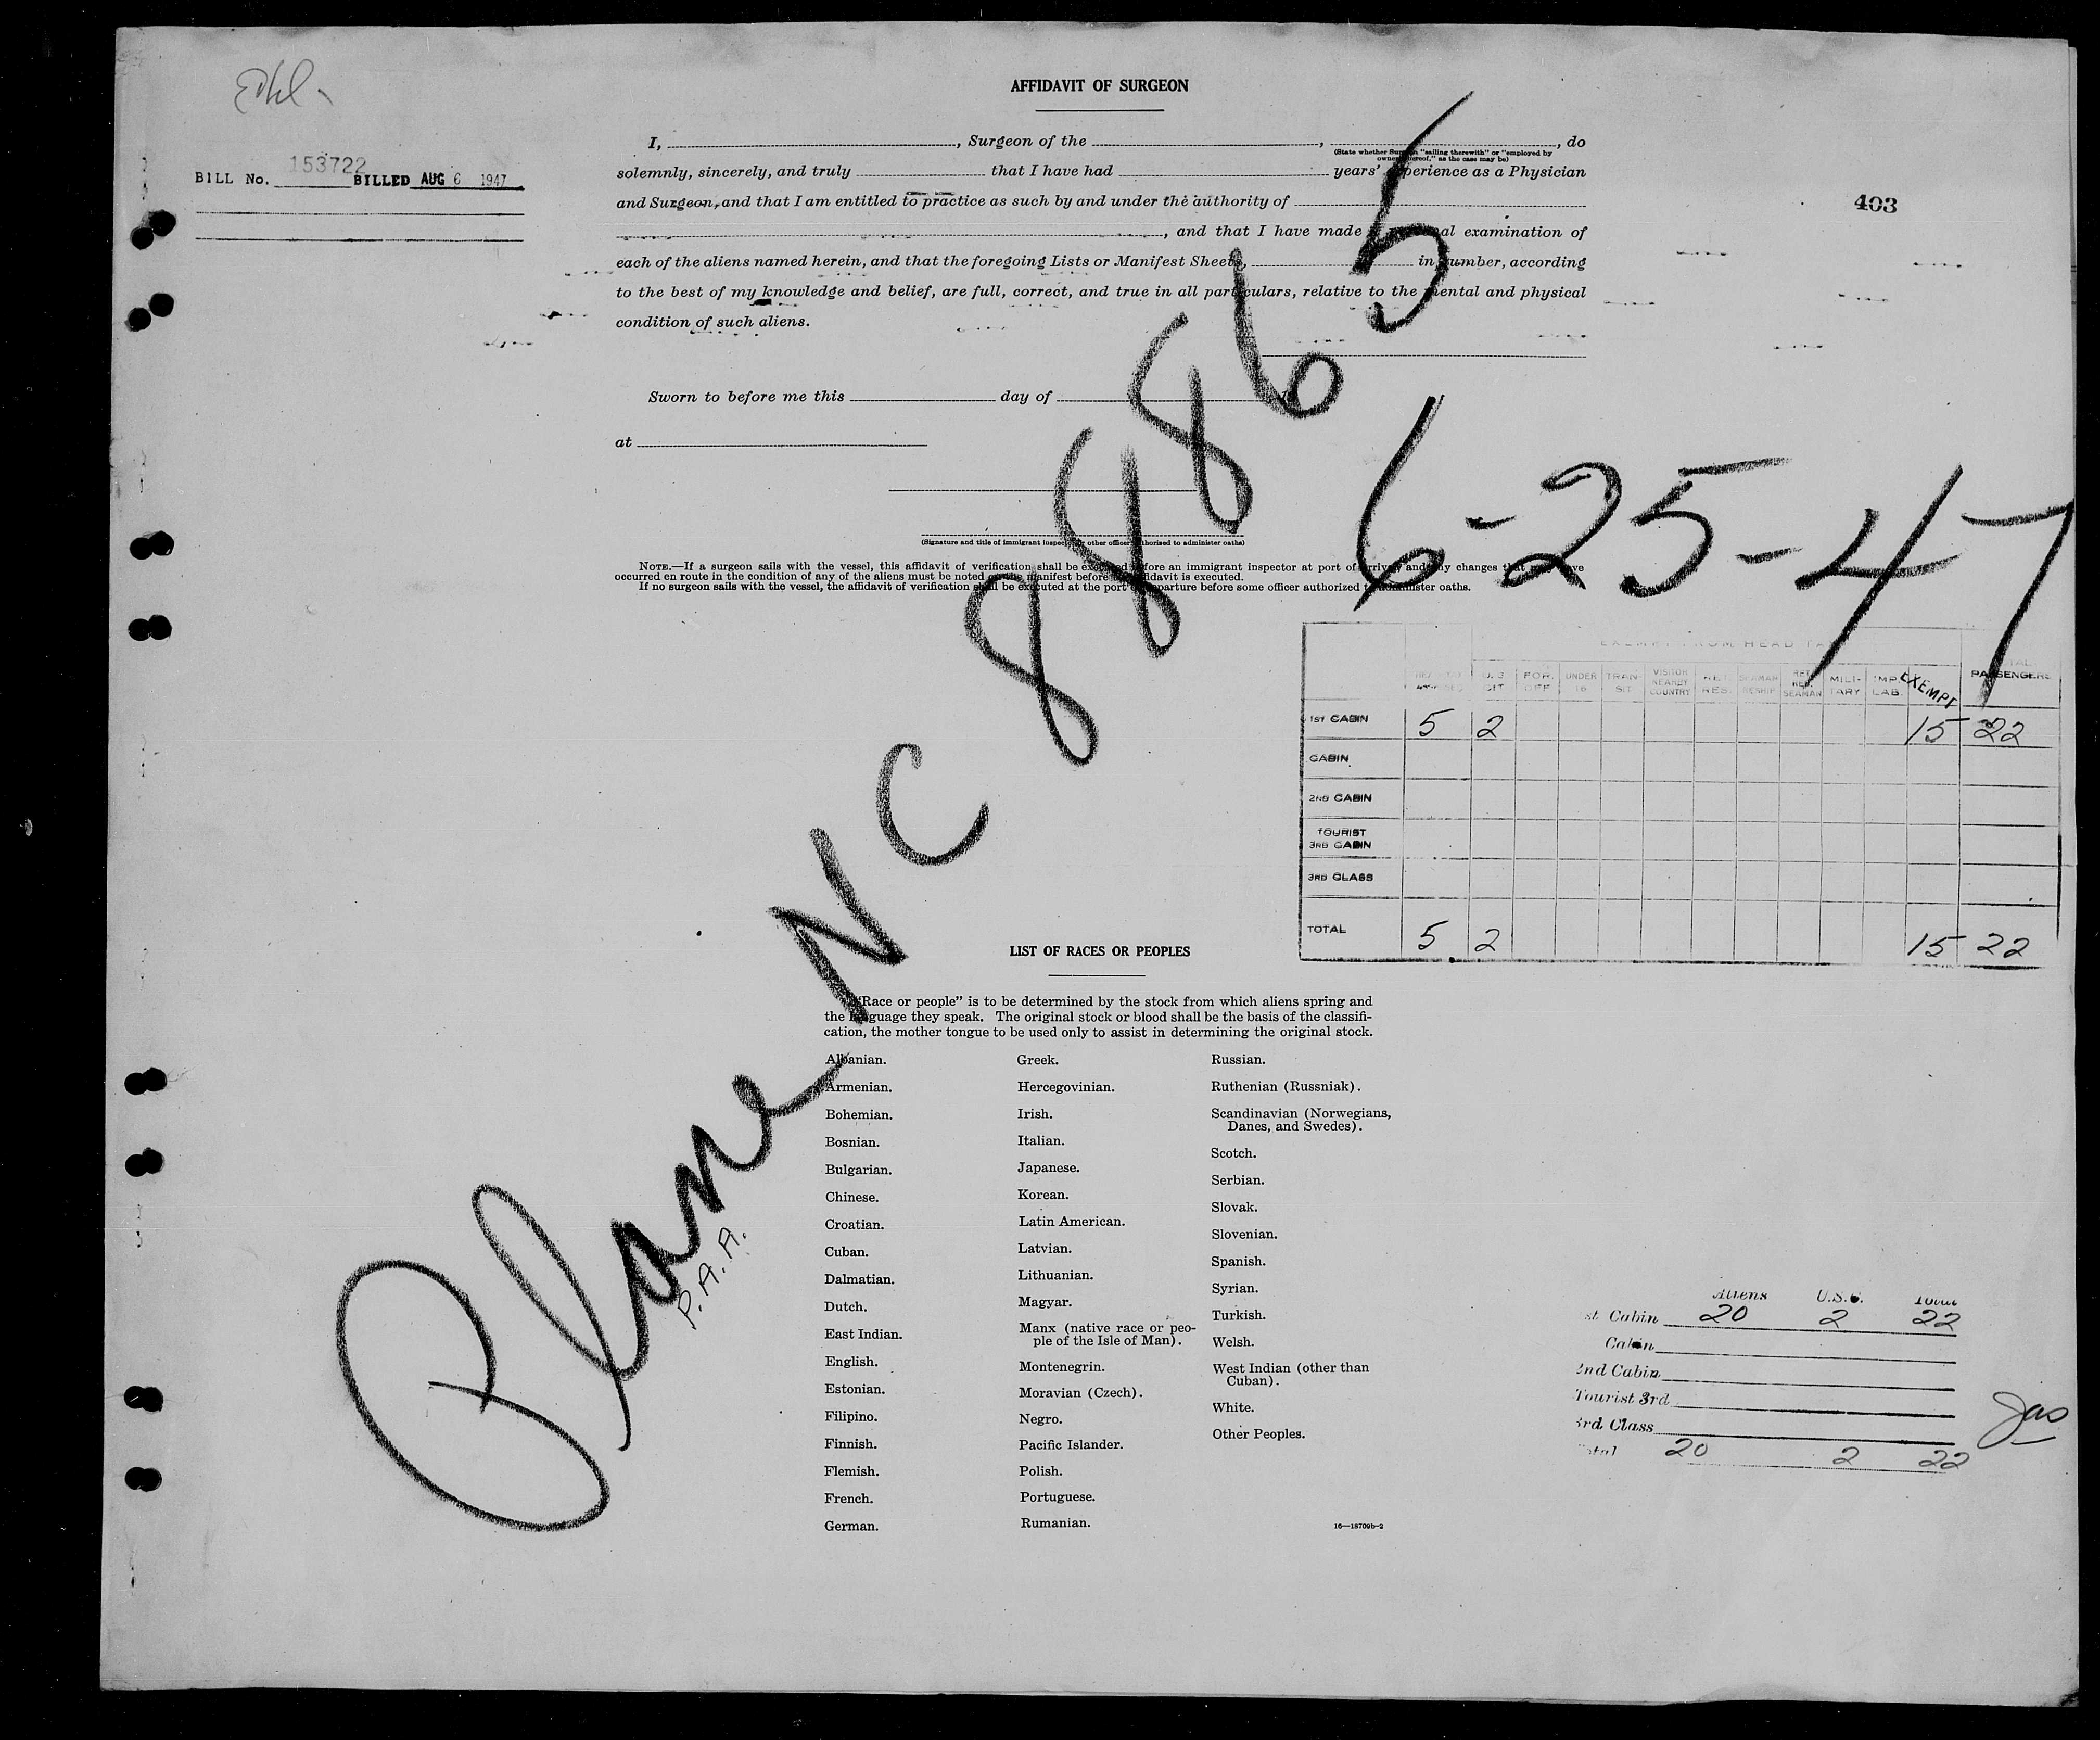 AFFIDAVIT OF SURGEON
BILL No. 153722 BILLED AUG 6 1947
403
I, , Surgeon of the , , do
(State whether Surgeon "sailing therewith" or "employed by
owners thereof," as the case may be)
solemnly, sincerely, and truly that I have had years' experience as a Physician
and Surgeon, and that I am entitled to practice as such by and under the authority of
, and that I have made a personal examination of
each of the aliens named herein, and that the foregoing Lists or Manifest Sheets, in number, according
to the best of my knowledge and belief, are full, correct, and true in all particulars, relative to the mental and physical
condition of such aliens.
Sworn to before me this day of
at
(Signature and title of immigrant inspector or other officer authorized to administer oaths)
NOTE.—If a surgeon sails with the vessel, this affidavit of verification shall be executed before an immigrant inspector at port of arrival and any changes that may have
occurred en route in the condition of any of the aliens must be noted on the manifest before affidavit is executed.
If no surgeon sails with the vessel, the affidavit of verification shall be executed at the port of departure before some officer authorized to administer oaths.
Plane NC 88865
P.A.A.
6-25-47
EXEMPT FROM HEAD TAX
U.S. CIT FOR. OFF UNDER 16 TRAN- SIT VISITOR NEARBY COUNTRY RET. RES. SEAMAN RESHIP SEAMAN MILI- TARY IMP. LAB. EXEMPT TOTAL PASSENGERS
1ST CABIN 5 2 15 22
CABIN
2ND CABIN
TOURIST
3RD CABIN
3RD CLASS
TOTAL 5 2 15 22
LIST OF RACES OR PEOPLES
"Race or people" is to be determined by the stock from which aliens spring and
the language they speak. The original stock or blood shall be the basis of the classifi-
cation, the mother tongue to be used only to assist in determining the original stock.
Albanian.
Armenian.
Bohemian.
Bosnian.
Bulgarian.
Chinese.
Croatian.
Cuban.
Dalmatian.
Dutch.
East Indian.
English.
Estonian.
Filipino.
Finnish.
Flemish.
French.
German.
Greek.
Hercegovinian.
Irish.
Italian.
Japanese.
Korean.
Latin American.
Latvian.
Lithuanian.
Magyar.
Manx (native race or peo-
ple of the Isle of Man).
Montenegrin.
Moravian (Czech).
Negro.
Pacific Islander.
Polish.
Portuguese.
Rumanian.
Russian.
Ruthenian (Russniak).
Scandinavian (Norwegians,
Danes, and Swedes).
Scotch.
Serbian.
Slovak.
Slovenian.
Spanish.
Syrian.
Turkish.
Welsh.
West Indian (other than
Cuban).
White.
Other Peoples.
16—18709b-2
Aliens U.S.C. Total
st Cabin 20 2 22
Cabin
2nd Cabin
Tourist 3rd
3rd Class
Total 20 2 22